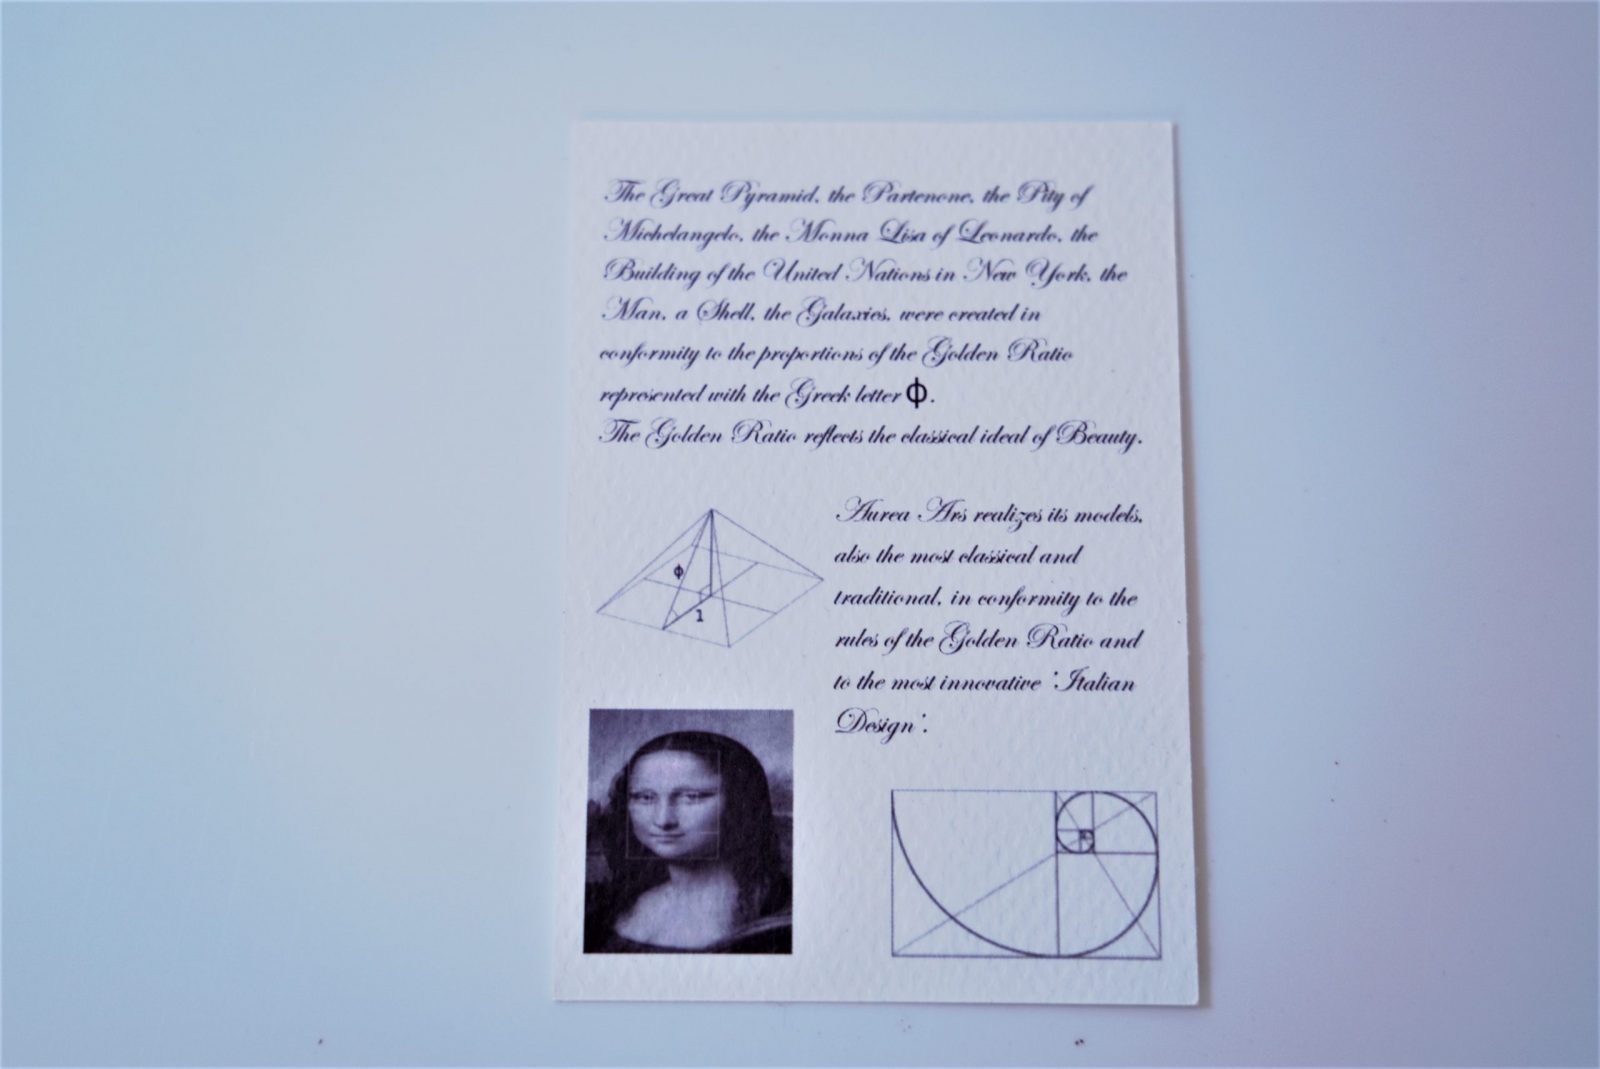 The Great Pyramid, the Partenone, the Pity of
Michelangelo, the Monna Lisa of Leonardo, the
Building of the United Nations in New York, the
Man, a Shell, the Galaxies, were created in
conformity to the proportions of the Golden Ratio
represented with the Greek letter ϕ.
The Golden Ratio reflects the classical ideal of Beauty.
Aurea Ars realizes its models,
also the most classical and
traditional, in conformity to the
rules of the Golden Ratio and
to the most innovative 'Italian
Design'.
ϕ
1